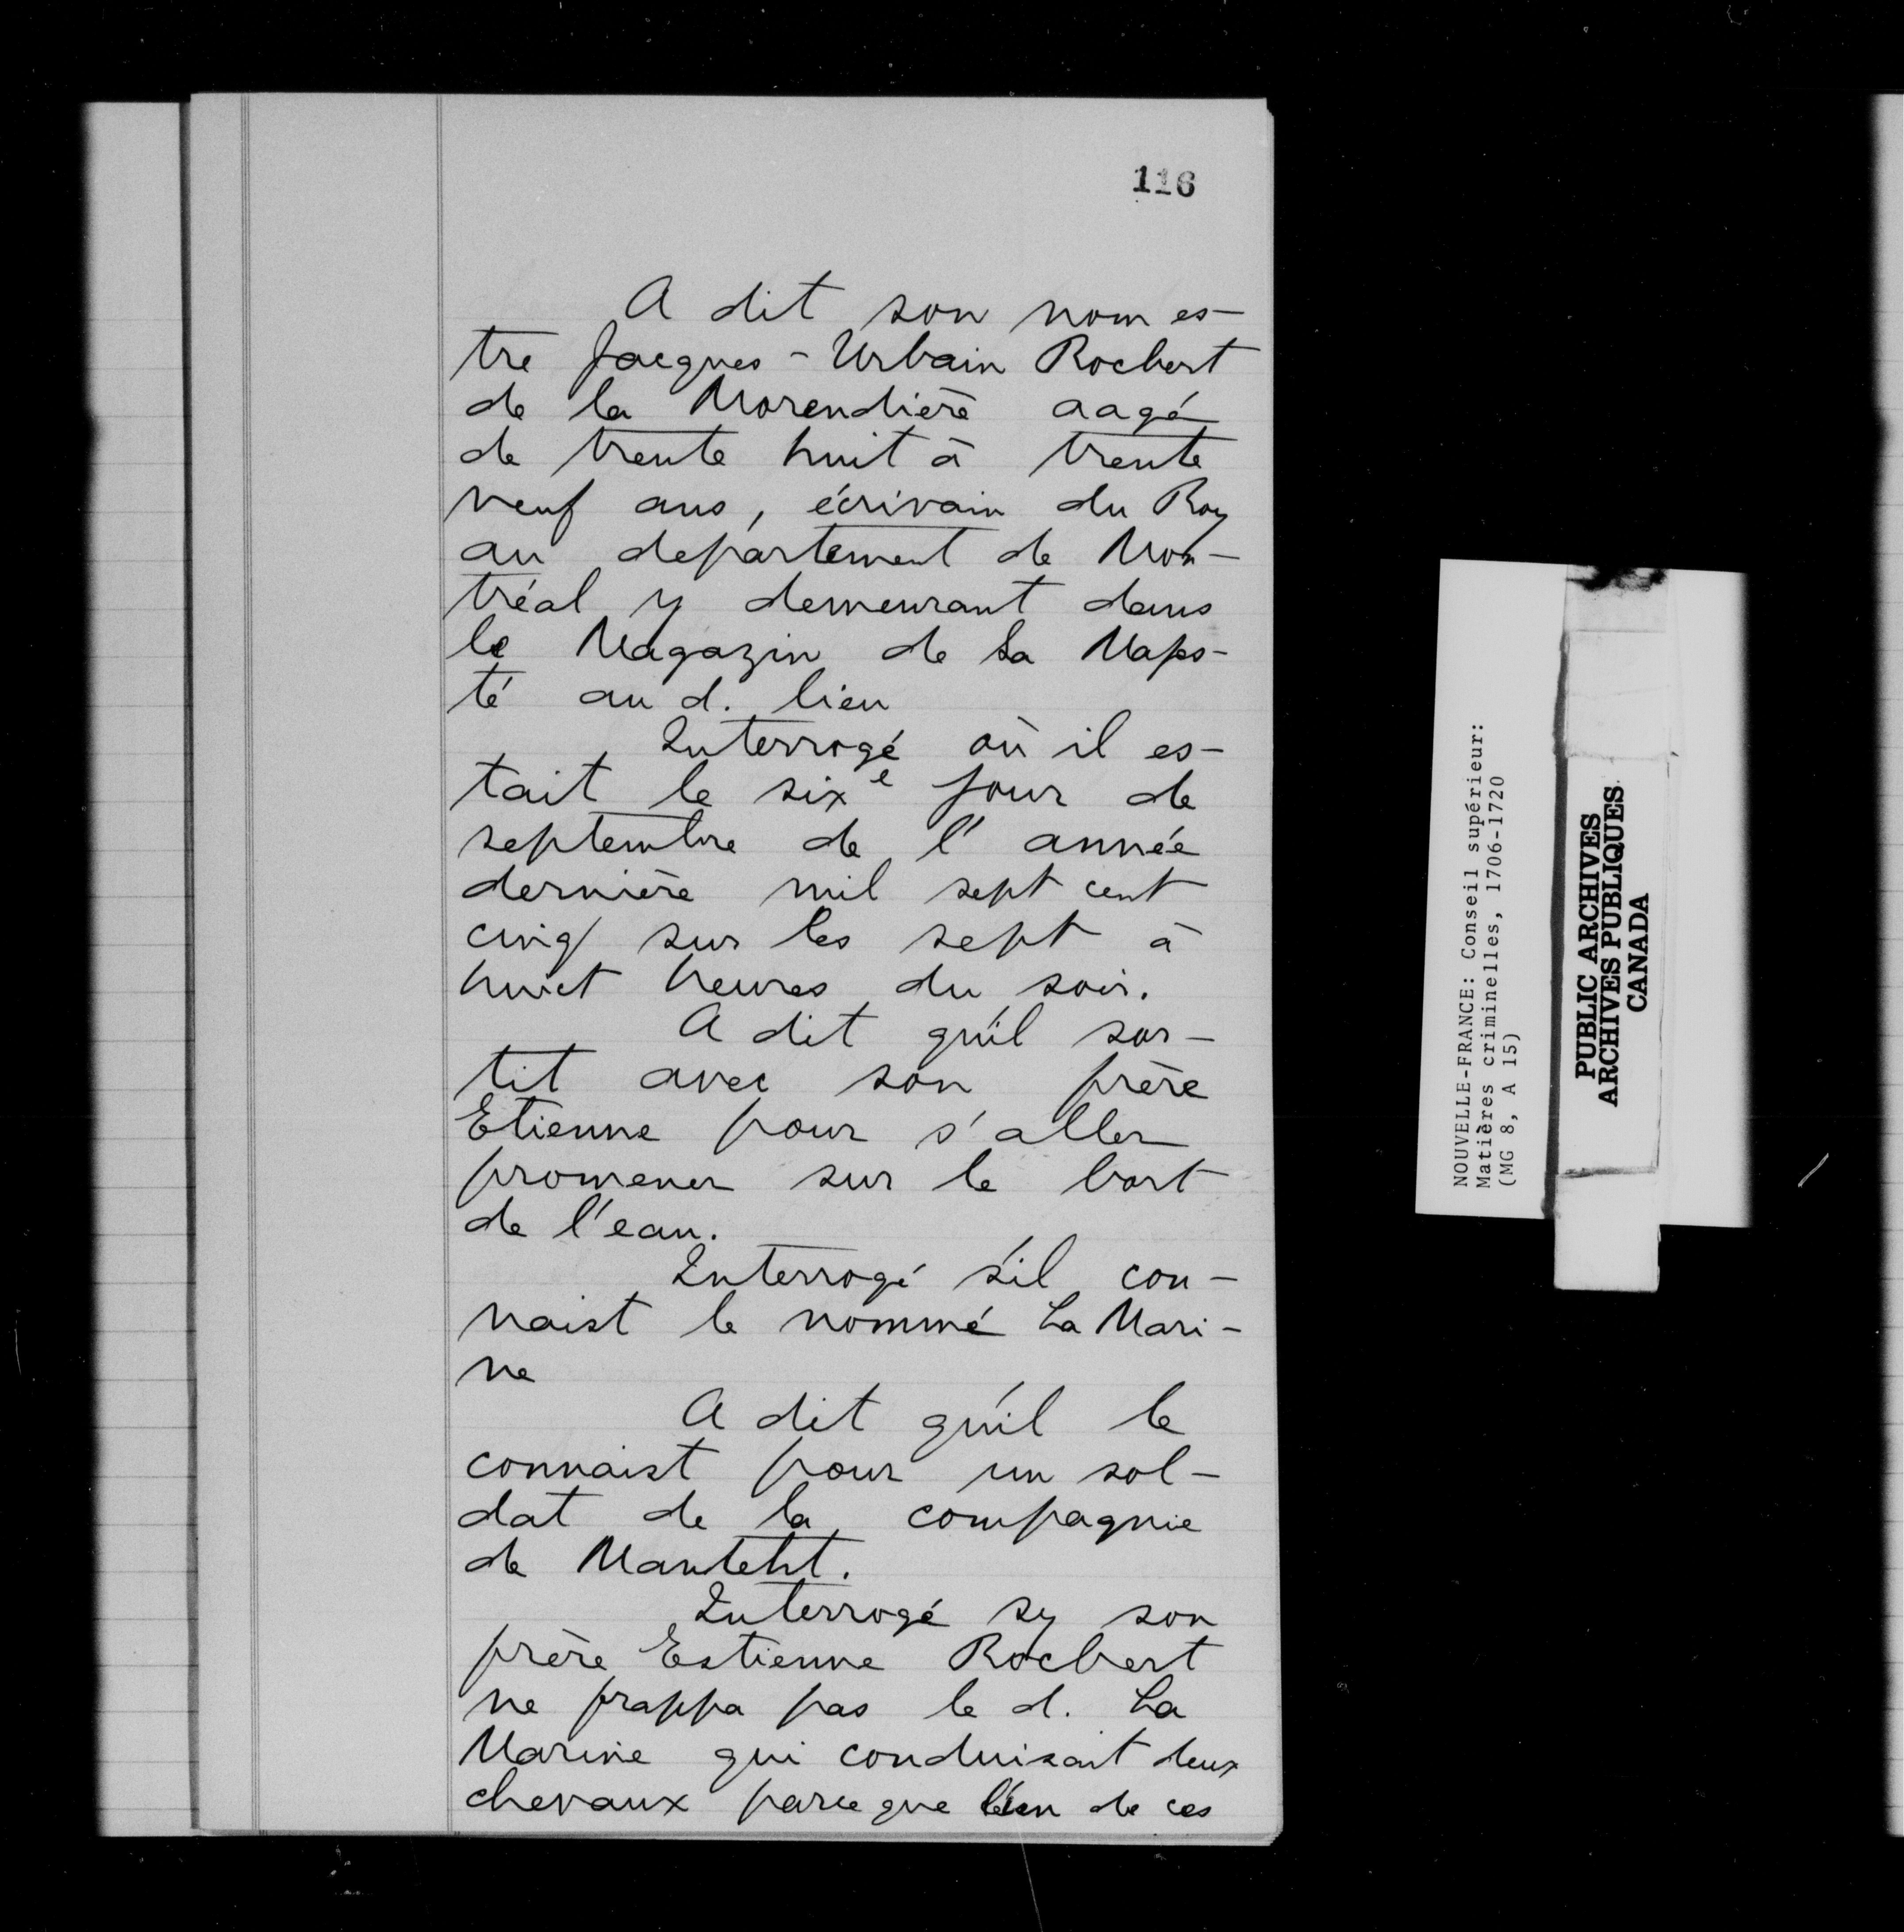 116
A dit son nom es-
tre Jacques-Urbain Rocbert
de la Morendière aagé
de trente huit à trente
neuf ans, écrivain du Roy
au departement de Mon-
tréal y demeurant dans
le Magazin de Sa Majes-
té au d. lieu
Interrogé où il es-
tait le six^e jour de
septembre de l'année
dernière mil sept cent
cinq sur les sept à
huict heures du soir.
A dit qu'il sor-
tit avec son frère
Etienne pour s'aller
promener sur le bort
de l'eau.
Interrogé s'il con-
naist le nommé La Mari-
ne
A dit qu'il le
connaist pour un sol-
dat de la compagnie
de Manteht.
Interrogé sy son
frère Estienne Rocbert
ne frappa pas le d. La
Marine qui conduisait deux
chevaux parce que l'un de ces
NOUVELLE-FRANCE: Conseil supérieur:
Matières criminelles, 1706-1720
(MG 8, A 15)
PUBLIC ARCHIVES
ARCHIVES PUBLIQUES
CANADA